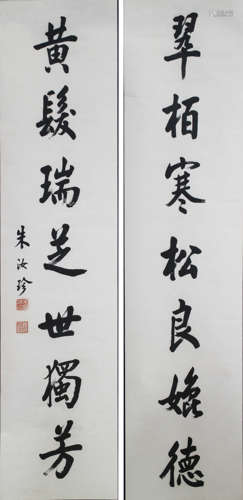 翠栢寒松良媲德
黃髮瑞芝世獨芳
朱汝珍